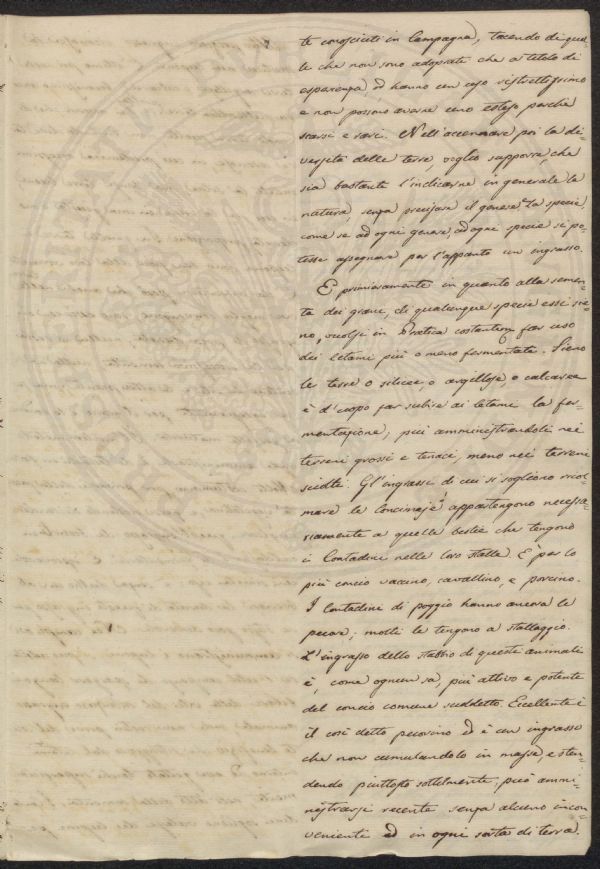 te conosciuti in Campagna, tacendo di quel-
le che non sono adoprate che a titolo di
esperienza, ed hanno un uso ristrettissimo
e non possono averne uno esteso perchè
scarsi e rari. Nell'accennare poi la di-
versità delle terre, voglio supporre, che
sia bastante l'indicarne in generale la
natura, senza precisare il genere o la specie,
come se ad ogni genere, ad ogni specie si po-
tesse assegnare per l'appunto un ingrasso.
E primieramente in quanto alla semen-
ta dei grani, di qualunque specie essi sie-
no, suolsi in Pratica costantem. far uso
dei letami più o meno fermentati. Sieno
le terre o silicee, o argillose, o calcaree
è d'uopo far subire ai letami la fer-
mentazione; più amministrandoli nei
terreni grossi e tenaci, meno nei terreni
sciolti. Gl'ingrassi di cui si sogliono ricol-
mare le Concimaje appartengono necessa-
riamente a quelle bestie che tengono
i Contadini nelle loro stalle. E' per lo
più concio vaccino, cavallino, e porcino.
I Contadini di poggio hanno ancora le
pecore; molti le tengono a stallaggio.
L'ingrasso dello stabbio di queste animali
è, come ognun sa, più attivo e potente
del concio comune suddetto. Eccellente è
il così detto pecorino ed è un ingrasso
che non cumulandolo in massa, e sten-
dendo piuttosto sottilmente, può ammi-
nistrarsi recente senza alcuno incon-
veniente ed in ogni sorta di terra.